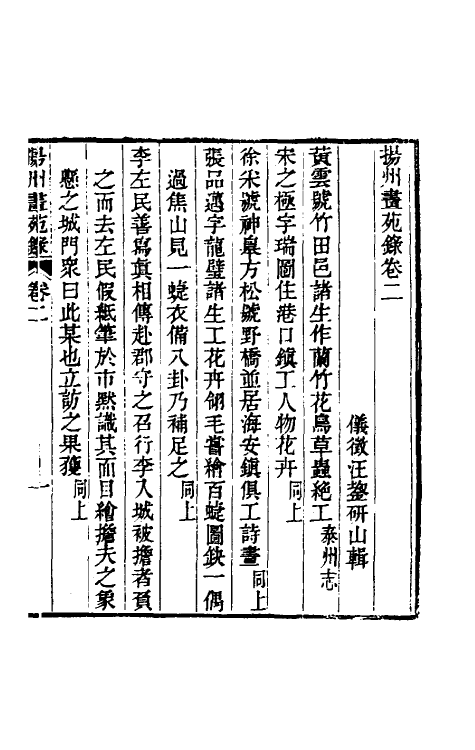 揚州畫苑錄卷二
儀徵汪鋆硏山輯
黃雲號竹田邑諸生作蘭竹花鳥草蟲絶工泰州志
宋之極字瑞圖住港口鎮工人物花卉同上
徐宋號神臯方松號野橋並居海安鎮俱工詩畫同上
張品邁字龍璧諸生工花卉翎毛嘗繪百蜨圖鈌一偶
過焦山見一蜨衣備八卦乃補足之同上
李左民善寫眞相傳赴郡守之召行李入城被擔者負
之而去左民假紙筆於市默識其面目繪擔夫之象
懸之城門衆曰此某也立訪之果獲同上
揚州畫苑錄 卷二 一